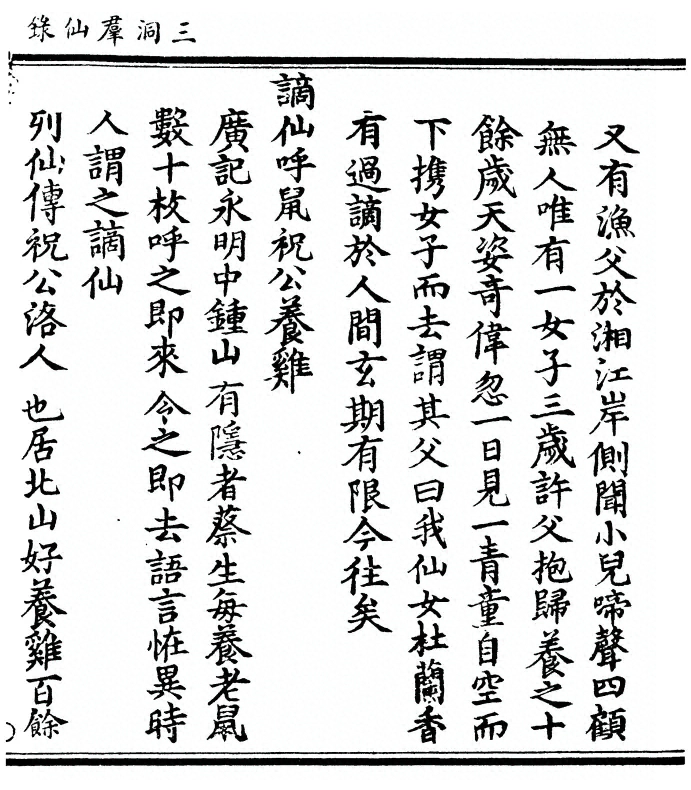 三洞羣仙錄
又有漁父於湘江岸側聞小兒啼聲四顧
無人唯有一女子三歲許父抱歸養之十
餘歲天姿奇偉忽一日見一青童自空而
下携女子而去謂其父曰我仙女杜蘭香
有過謫於人間玄期有限今往矣
謫仙呼鼠祝公養雞
廣記永明中鍾山有隱者蔡生每養老鼠
數十枚呼之即來令之即去語言恠異時
人謂之謫仙
列仙傳祝公洛人也居北山好養雞百餘